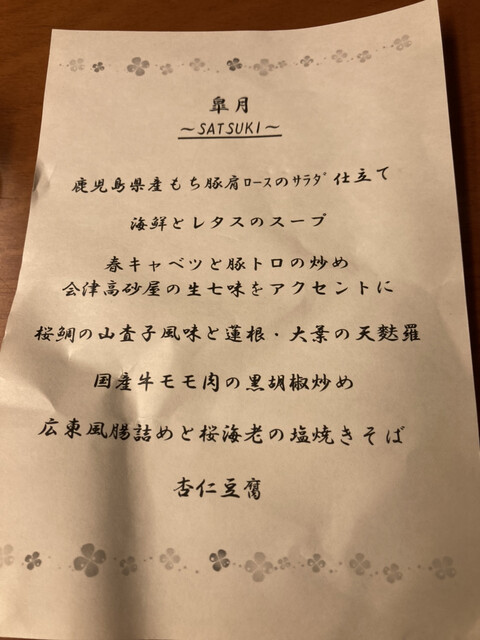 皐月
～SATSUKI～
鹿児島県産もち豚肩ﾛｰｽのｻﾗﾀﾞ仕立て
海鮮とレタスのスープ
春キャベツと豚トロの炒め
会津高砂屋の生七味をアクセントに
桜鯛の山査子風味と蓮根・大葉の天麩羅
国産牛モモ肉の黒胡椒炒め
広東風腸詰めと桜海老の塩焼きそば
杏仁豆腐